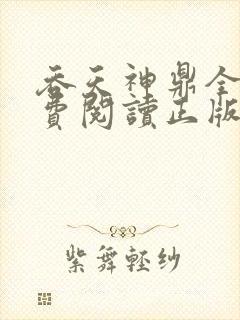 吞天神鼎全
費閱讀正版
紫舞輕紗